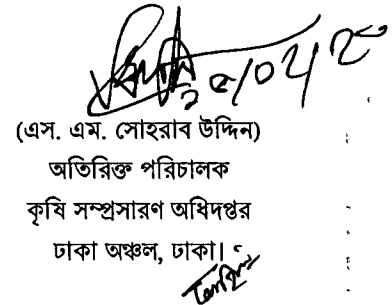 (এস. এম. সোহরাব উদ্দিন)
অতিরিক্ত পরিচালক
কৃষি সম্প্রসারণ অধিদপ্তর
ঢাকা অঞ্চল, ঢাকা।